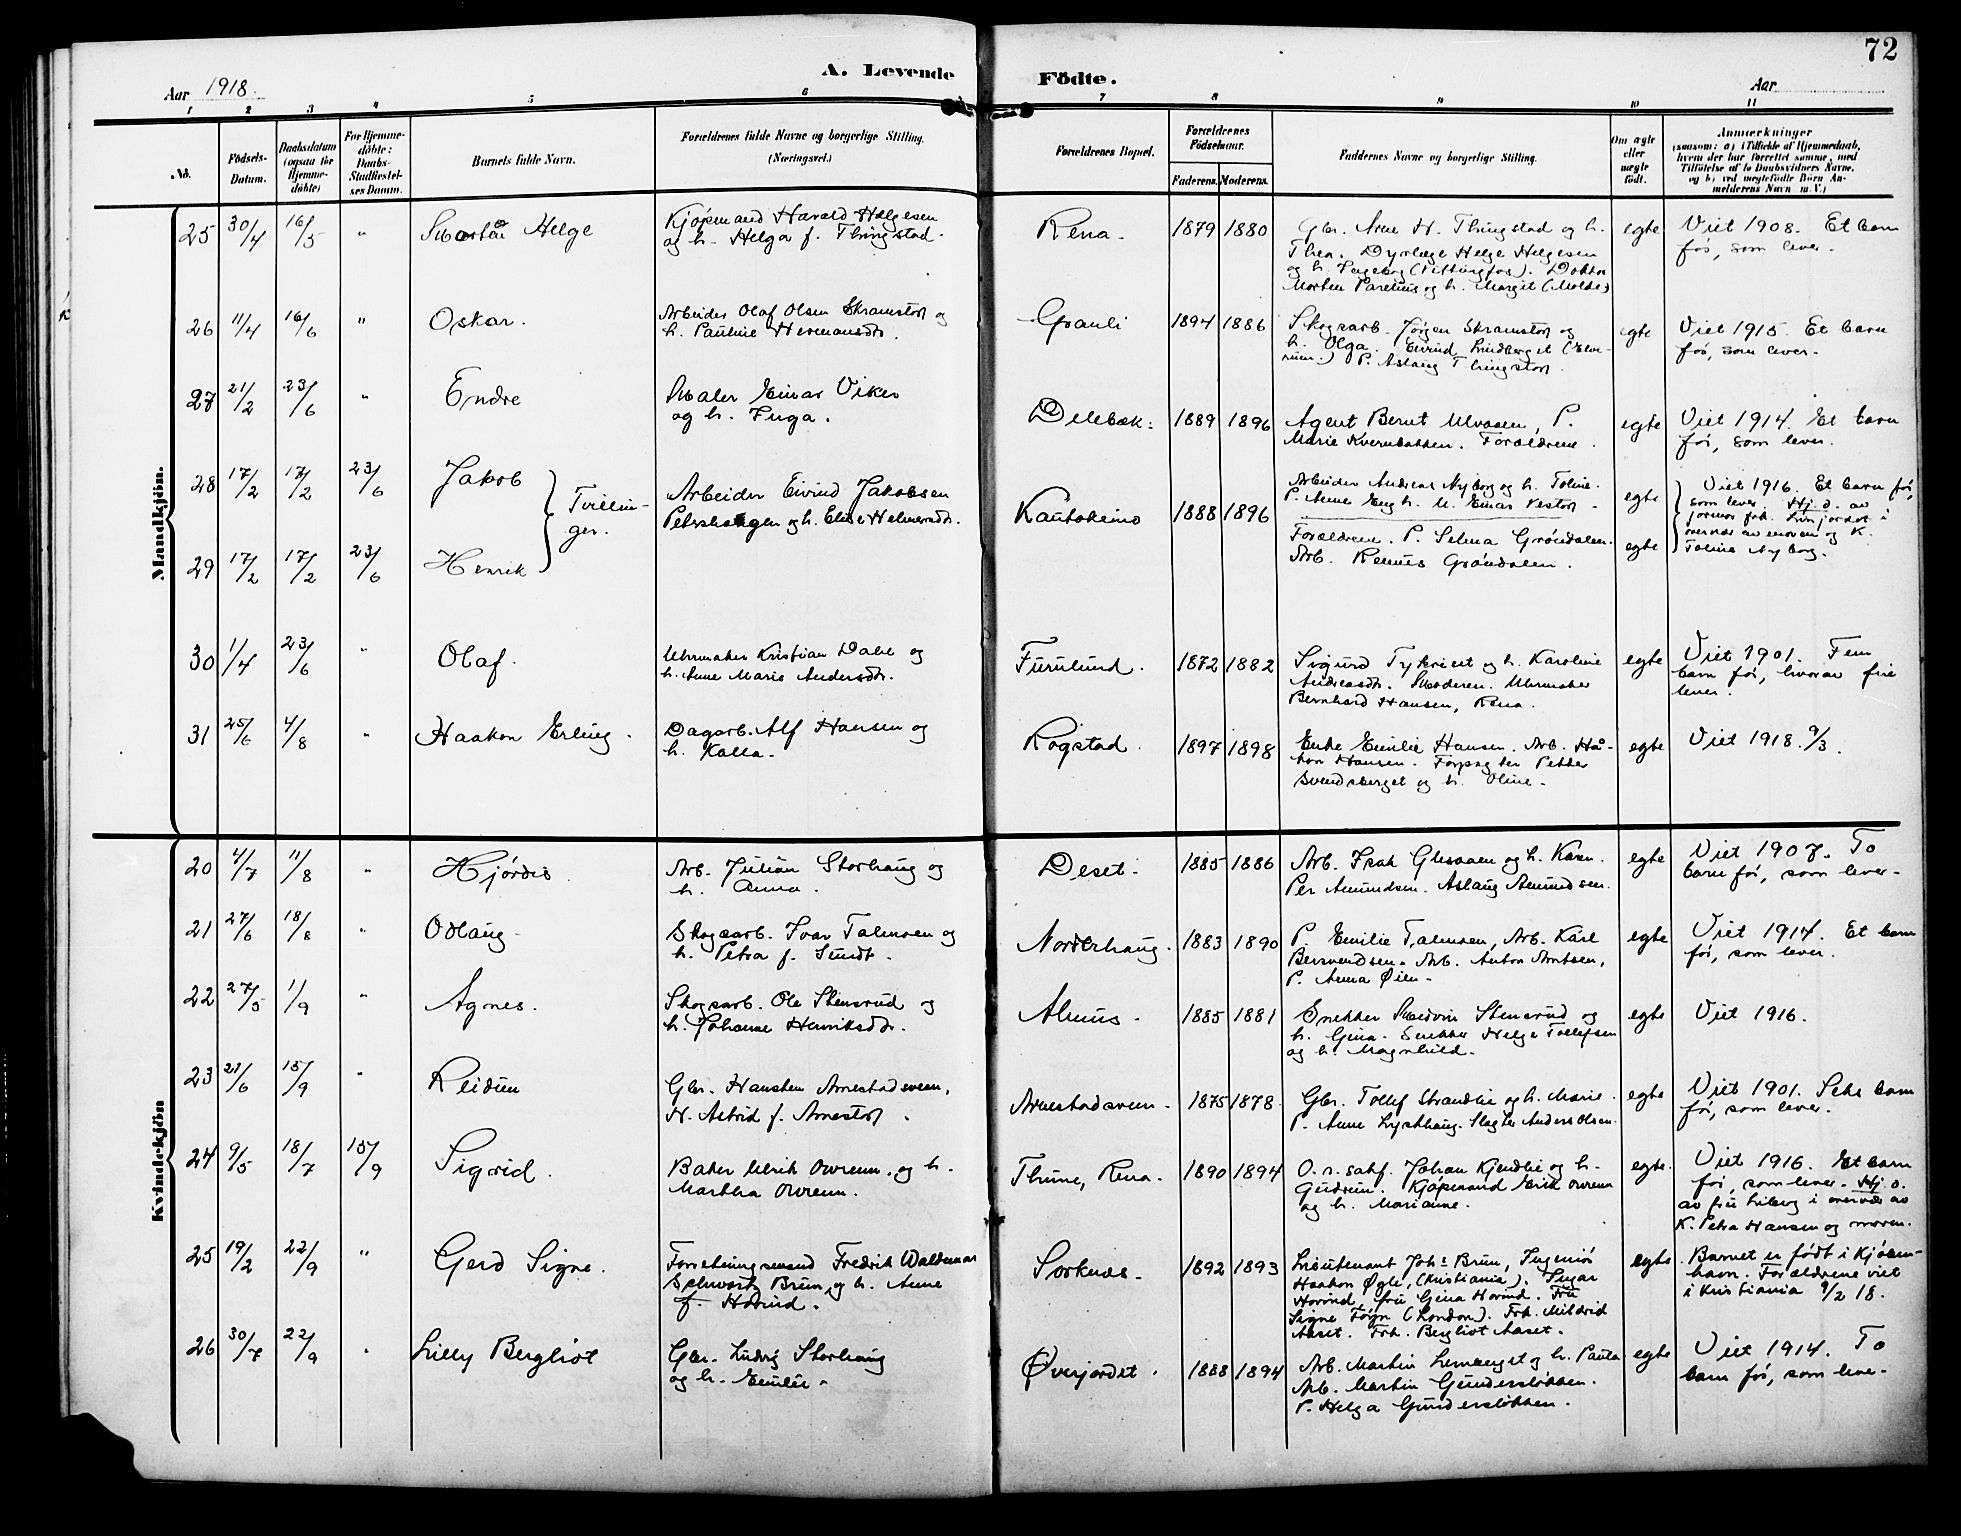 72
A. Levende Födte.
Aar 1918.
Aar
1 2 3 4 5 6 7 8 9 10 11
No.
Födsels-
Datum.
Daabsdatum
(ogsaa for
Hjemme-
döbte)
For Hjemme-
döbte:
Daabs-
Stadfæstel-
ses Datum.
Barnets fulde Navn.
Forældrenes fulde Navne og borgerlige Stilling.
(Næringsvei.)
Forældrenes Bopæl.
Forældrenes
Födselsaar.
Faderens. Moderens.
Faddernes Navne og borgerlige Stilling.
Om ægte
eller
uægte
födt.
Anmærkninger
(saasom: a) i Tilfælde af Hjemmedaab,
hvem der har forrettet samme, med
Tilföielse af to Daabsvidners Navne,
og b) ved uægtefödte Börn An-
melderens Navn m. V.)
Mandkjön.
25 30/4 16/5 " Helge
Kjøpmand Harald Helgesen
og h. Helga f. Thingstad.
Rena. 1879 1880
Gbr. Arne H. Thingstad og h.
Thea. Dyrlæge Helge Helgesen
og h. Ingeborg (Vittingfos). Doktor
Morten Parelius og h. Margit (Molde)
egte
Viet 1908. Et barn
før, som lever.
26 11/4 16/6 " Oskar.
Arbeider Olaf Olsen Skramstor og
h. Pauline Hermansdr.
Granli 1894 1886
Skogsarb. Jørgen Skramstor og
h. Olga. Eivind Lindberget (Elve-
rum.) P. Aslaug Thingstor.
egte
Viet 1915. Et barn
før, som lever.
27 21/2 23/6 " Endre
Maler Einar Viker
og h. Inga.
Dellebæk. 1889 1896
Agent Bernt Ulvaaen, P.
Marie Kvernbakken. Forældrene.
egte
Viet 1914. Et barn
før, som lever.
28 17/2 17/2 23/6 Jakob
29 17/2 17/2 23/6 Henrik
Tvillin-
ger.
Arbeider Eivind Jakobsen
Petershaugen og h. Elise Helmersdr.
Kautokeino 1888 1896
Arbeider Andreas Nyborg og h. Toline.
P. Anne Eng h. U. Einar Vestor.
Forældrene. P. Selma Grøndalen.
Arb. Rasmus Grøndalen.
egte
egte
Viet 1916. Et barn før,
som lever. Hj. d. av
jormor frk. Linjordet i
overvær av moren og K.
Toline Nyborg.
30 1/4 23/6 " Olaf.
Uhrmaker Kristian Dahl og
h. Anne Marie Andersdr.
Furulund. 1872 1882
Sigurd Tykviet og h. Karoline
Andreasdr. Moderen. Uhrmaker
Bernhard Hansen, Rena.
egte
Viet 1901. Fem
barn før, hvorav fire
lever.
31 25/6 4/8 " Haakon Erling.
Dagarb. Alf Hansen og
h. Kalla.
Rogstad. 1897 1898
Enke Emilie Hansen. Arb. Hå-
kon Hansen. Forpagter Petter
Svendsberget og h. Oline.
egte
Viet 1918. 9/3.
Kvindekjön
20 4/7 11/8 " Hjørdis.
Arb. Julian Storhaug og
h. Anna.
Deset. 1885 1886
Arb. Isak Glesaaen og h. Karen.
Per Amundsen. Aslaug Amundsen.
egte
Viet 1907. To
barn før, som lever.
21 27/6 18/8 " Odlaug.
Skogsarb. Ivar Talmoen og
h. Petra f. Sundt.
Norderhaug. 1883 1890
P. Emilie Talmoen, Arb. Karl
Bersvendsen. Arb. Anton Arntsen,
P. Anna Øien.
egte
Viet 1914. Et barn
før, som lever.
22 27/5 1/9 " Agnes.
Skogsarb. Ole Stensrud og
h. Johanne Henriksdr.
Alnus. 1885 1881
Snekker Medvin Stensrud og
h. Gina. Snekker Helge Tollefsen
og h. Magnhild.
egte
Viet 1916.
23 21/6 15/9 " Reidun
Gbr. Hansten Arnestadsveen,
H. Astrid f. Arnestor.
Arnestadsveen. 1875 1878.
Gbr. Tollef Strandlie og h. Marie.
P. Anne Lysthaug. Slagter Anders Olsen.
egte
Viet 1901. Seks barn
før, som lever.
24 9/5 18/7 15/9 Sigrid.
Baker Ulrik Ovrenn. og h.
Martha Ovrenn.
Thune, Rena. 1890 1894
O.r. sakf. Johan Kjendlie og h.
Gudrun. Kjøpmand Erik Ovrenn
og h. Marianne.
egte.
Viet 1916. Et barn
før, som lever. Hj. d.
av fru Liberg i overvær av
K. Petra Hansen og moren.
25 19/2 22/9 " Gerd Signe.
Forretningsmand Fredrik Waldemar
Schwartz Brun, og h. Anne
f. Hovind.
Sorknæs. 1892 1893
Lieutenant Johs Brun, Ingeniør
Haakon Øgle, (Kristiania). Ingar
Hovind, fru Gina Hovind. Fru
Signe Føyn (London). Frk. Mildrid
Aaset. Frk. Bergliot Aaset.
egte
Barnet er født i Kjøben-
havn. Forældrene viet
i Kristiania 9/2 18.
26 30/7 22/9 " Lilly Bergliot
Gbr. Ludvig Storhaug
og h. Emilie.
Øverjordet. 1888 1894
Arb. Martin Lemberget og h. Paula
Arb. Martin Gundersløkken.
P. Helga Gundersløkken.
egte
Viet 1914. To
barn før, som leve.